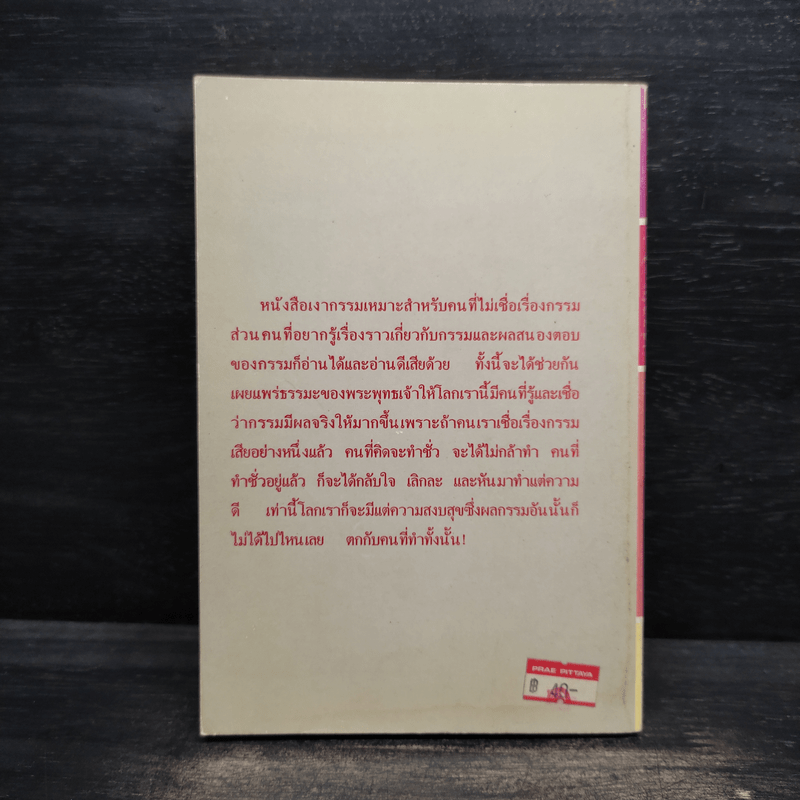 หนังสือเงากรรมเหมาะสำหรับคนที่ไม่เชื่อเรื่องกรรม
ส่วนคนที่อยากรู้เรื่องราวเกี่ยวกับกรรมและผลสนองตอบ
ของกรรมก็อ่านได้และอ่านดีเสียด้วย ทั้งนี้จะได้ช่วยกัน
เผยแพร่ธรรมะของพระพุทธเจ้าให้โลกเรานี้มีคนที่รู้และเชื่อ
ว่ากรรมมีผลจริงให้มากขึ้นเพราะถ้าคนเราเชื่อเรื่องกรรม
เสียอย่างหนึ่งแล้ว คนที่คิดจะทำชั่ว จะได้ไม่กล้าทำ คนที่
ทำชั่วอยู่แล้ว ก็จะได้กลับใจ เลิกละ และหันมาทำแต่ความ
ดี เท่านี้โลกเราก็จะมีแต่ความสงบสุขซึ่งผลกรรมอันนั้นก็
ไม่ได้ไปไหนเลย ตกกับคนที่ทำทั้งนั้น!
PRAE PITTAYA
฿